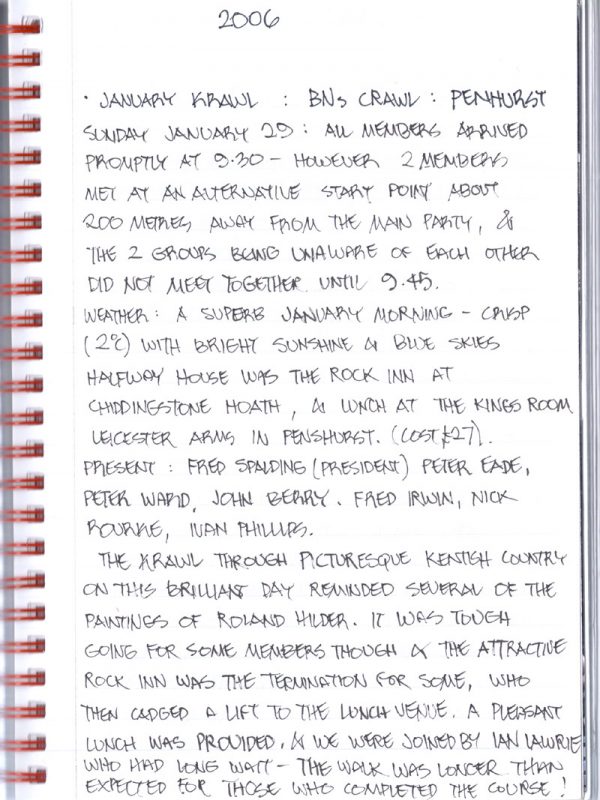 2006
· JANUARY KRAWL : BNs CRAWL : PENHURST
SUNDAY JANUARY 29 : ALL MEMBERS ARRIVED
PROMPTLY AT 9.30 - HOWEVER 2 MEMBERS
MET AT AN ALTERNATIVE START POINT ABOUT
200 METRES AWAY FROM THE MAIN PARTY, &
THE 2 GROUPS BEING UNAWARE OF EACH OTHER
DID NOT MEET TOGETHER UNTIL 9.45.
WEATHER : A SUPERB JANUARY MORNING - CRISP
(2°C) WITH BRIGHT SUNSHINE & BLUE SKIES
HALFWAY HOUSE WAS THE ROCK INN AT
CHIDDINGSTONE HOATH, & LUNCH AT THE KINGS ROOM
LEICESTER ARMS IN PENSHURST. (COST £27).
PRESENT : FRED SPALDING (PRESIDENT) PETER EADE,
PETER WARD, JOHN BERRY. FRED IRWIN, NICK
ROURKE, IVAN PHILLIPS.
THE KRAWL THROUGH PICTURESQUE KENTISH COUNTRY
ON THIS BRILLIANT DAY REMINDED SEVERAL OF THE
PAINTINGS OF ROLAND HILDER. IT WAS TOUGH
GOING FOR SOME MEMBERS THOUGH & THE ATTRACTIVE
ROCK INN WAS THE TERMINATION FOR SOME, WHO
THEN CADGED A LIFT TO THE LUNCH VENUE. A PLEASANT
LUNCH WAS PROVIDED, & WE WERE JOINED BY IAN LAWRIE
WHO HAD LONG WAIT - THE WALK WAS LONGER THAN
EXPECTED FOR THOSE WHO COMPLETED THE COURSE !